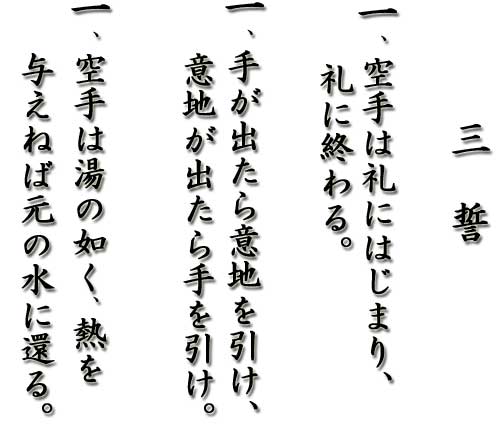 三誓
一、空手は礼にはじまり、
礼に終わる。
一、手が出たら意地を引け、
意地が出たら手を引け。
一、空手は湯の如く、熱を
与えねば元の水に還る。